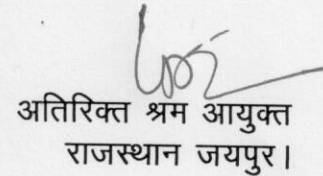 अतिरिक्त श्रम आयुक्त
राजस्थान जयपुर।